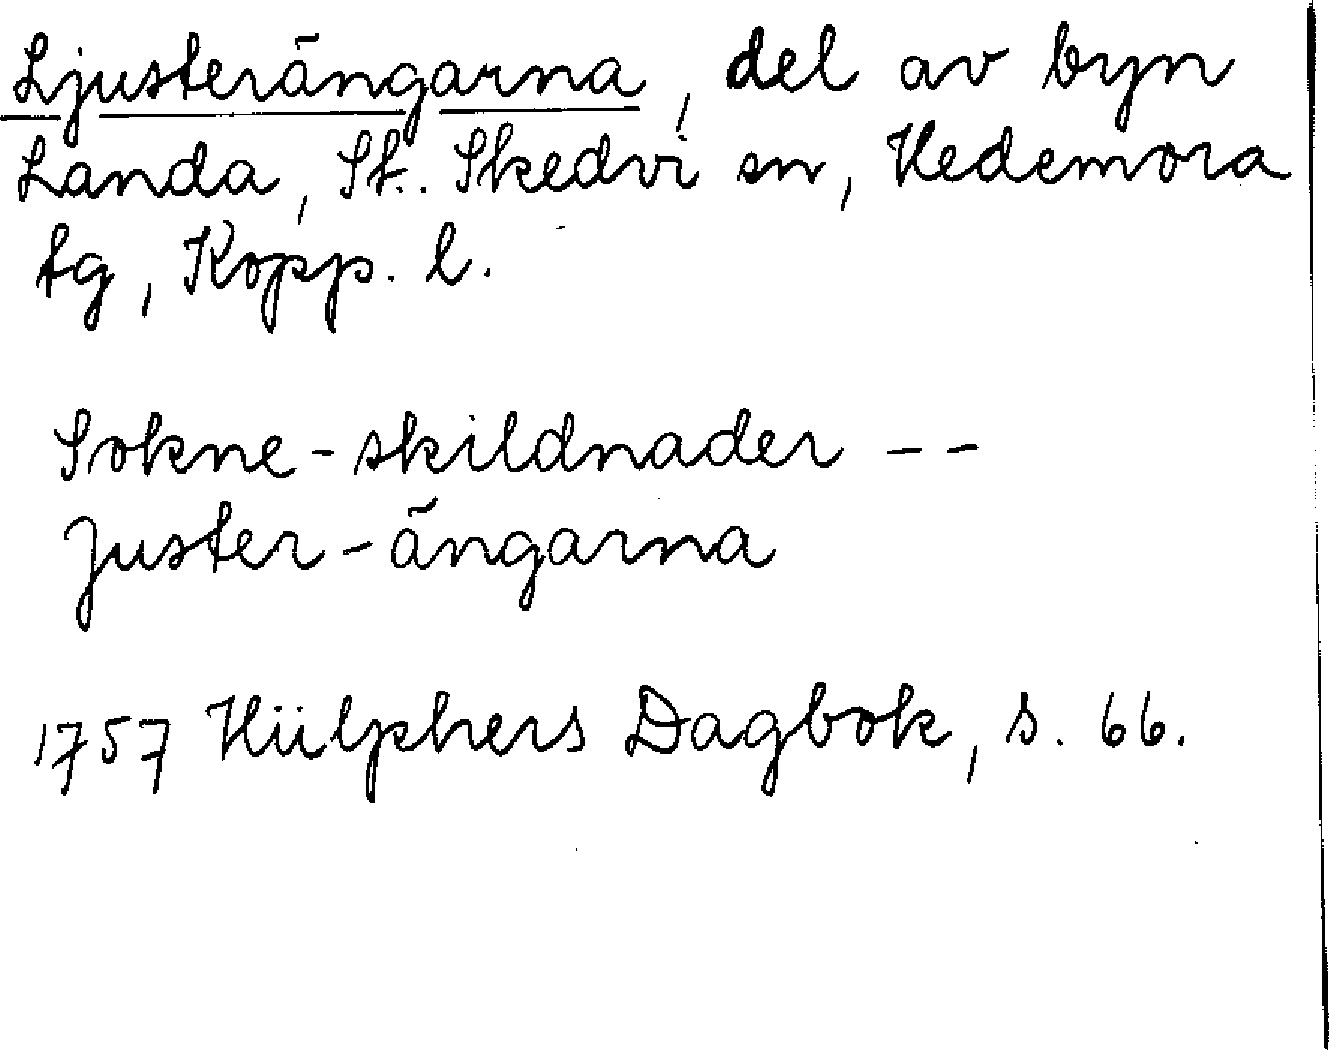 Ljusterängarna, del av byn
Landa, St. Skedvi sn, Hedemora
tg, Kopp. l.
Sokne-skildnader --
Juster-ängarna
1757 Hülphers Dagbok, s. 66.